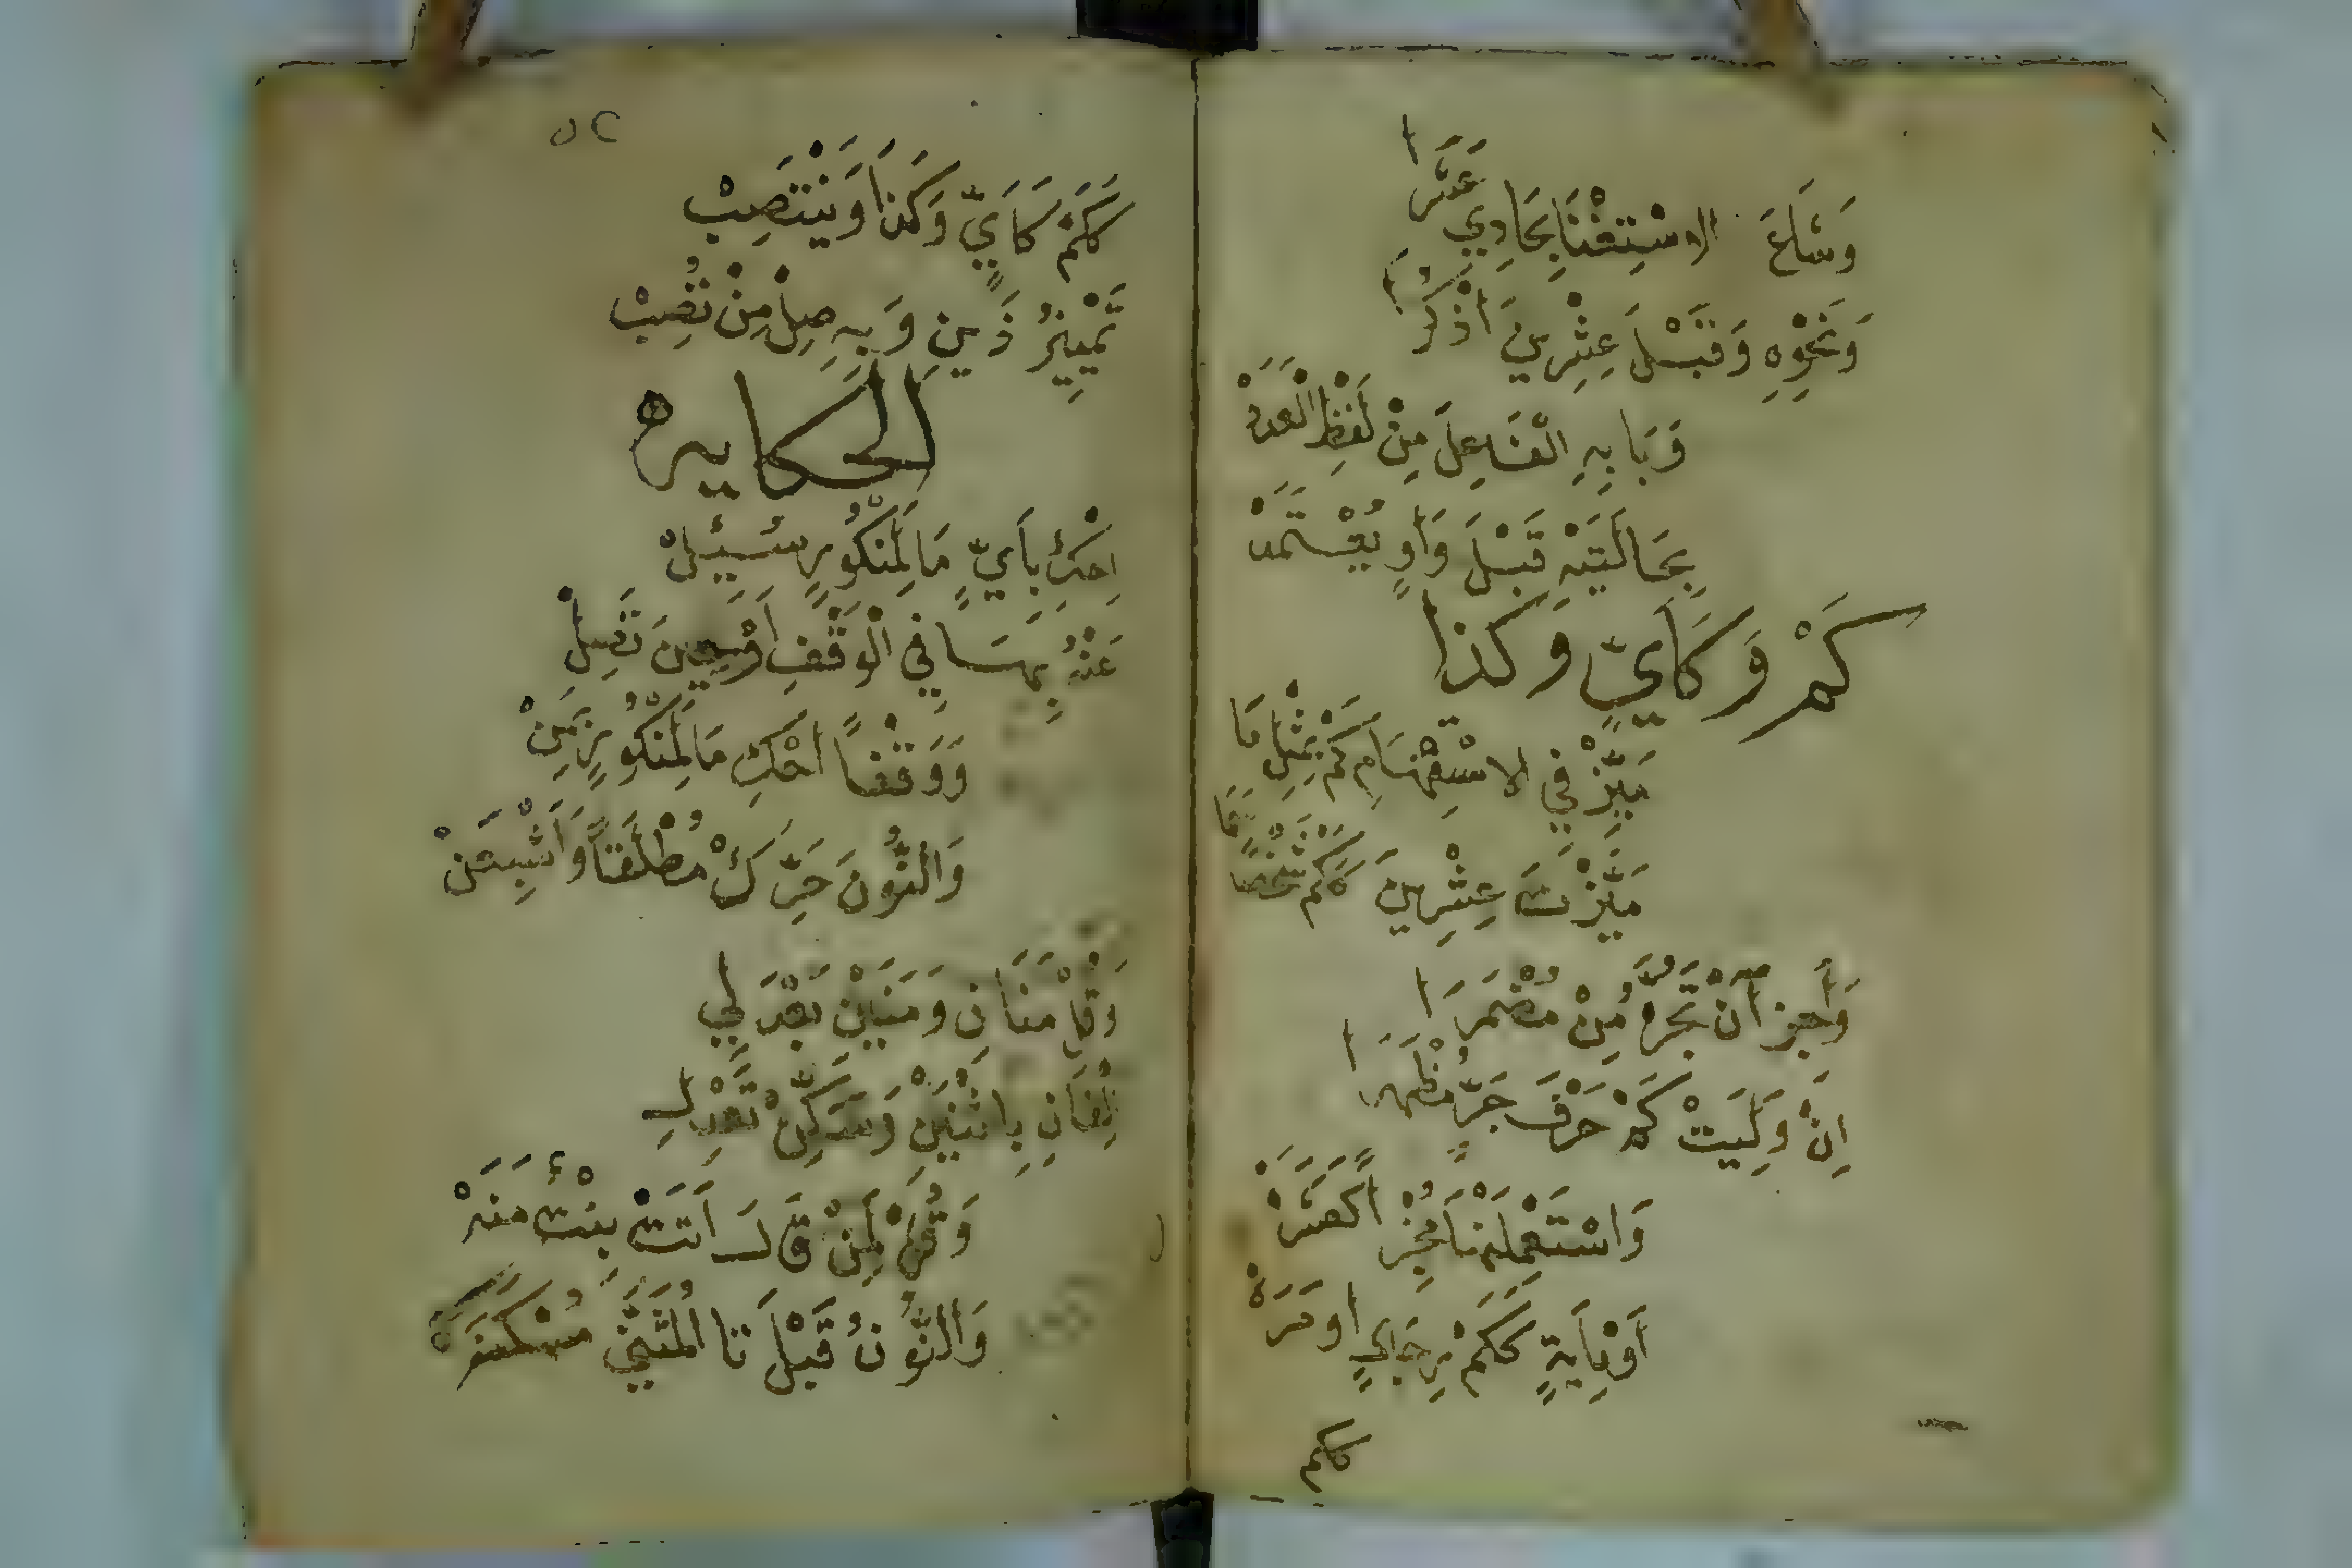 وَشَاعَ الاسْتِغْنَا بِحَادِي عَشَرَا
وَنَحْوِهِ وَقَبْلَ عِشْرِينَ اذْكُرَا
وَبَابِهِ الْفَاعِلَ مِنْ لَفْظِ الْعَدَدْ
بِحَالَتَيْهِ قَبْلَ وَاوٍ يُعْتَمَدْ
كَمْ وَكَايٍّ وَكَذَا
مَيِّزْ فِي لاسْتِفْهَامِ كَمْ بِمِثْلِ مَا
مَيَّزْتَ عِشْرِينَ كَكَمْ شَخْصًا سَمَا
وَأَجِز آنْ تَجُرَّهُ مِنْ مُضْمَرَا
اِنْ وَلِيَتْ كَمْ حَرْفَ جَرٍّ مُظْهَرَا
وَاسْتَعْمِلَنْهَا مُخْبِرًا كَعَشَرَهْ
أَوْ مِايَةٍ كَكَمْ رِجَالٍ اوْ مَرَهْ
ككم
٥٢
كَكَمْ كَاَيٍّ وَكَذَا وَيَنْتَصِبْ
تَمْيِيزُ ذَيْنِ وَبِهِ صِلْ مِنْ تُصِبْ
الحكايه
اِحْكِ بِأَيٍّ مَا لِمَنْكُورٍ سُئِلْ
عَنْهُ بِهَا فِي الْوَقْفِ اَوْ حِينَ تَصِلْ
وَوَقْفًا احْكِ مَا لِمَنْكُورٍ بِمَنْ
وَالنُّونَ حَرِّكْ مُطْلَقًا وَأَشْبِعَنْ
وَقُلْ مَنَانِ وَمَنَيْنِ بَعْدَ لِي
اِلْفَانِ بِاثْنَيْنِ وَسَكِّنْ تَعْدِلِ
وَقُلْ لِمَنْ قَالَ أَتَتْ بِنْتٌ مَنَهْ
وَالنُّونُ قَبْلَ تَا الْمُثَنَّى مُسْكَنَهْ